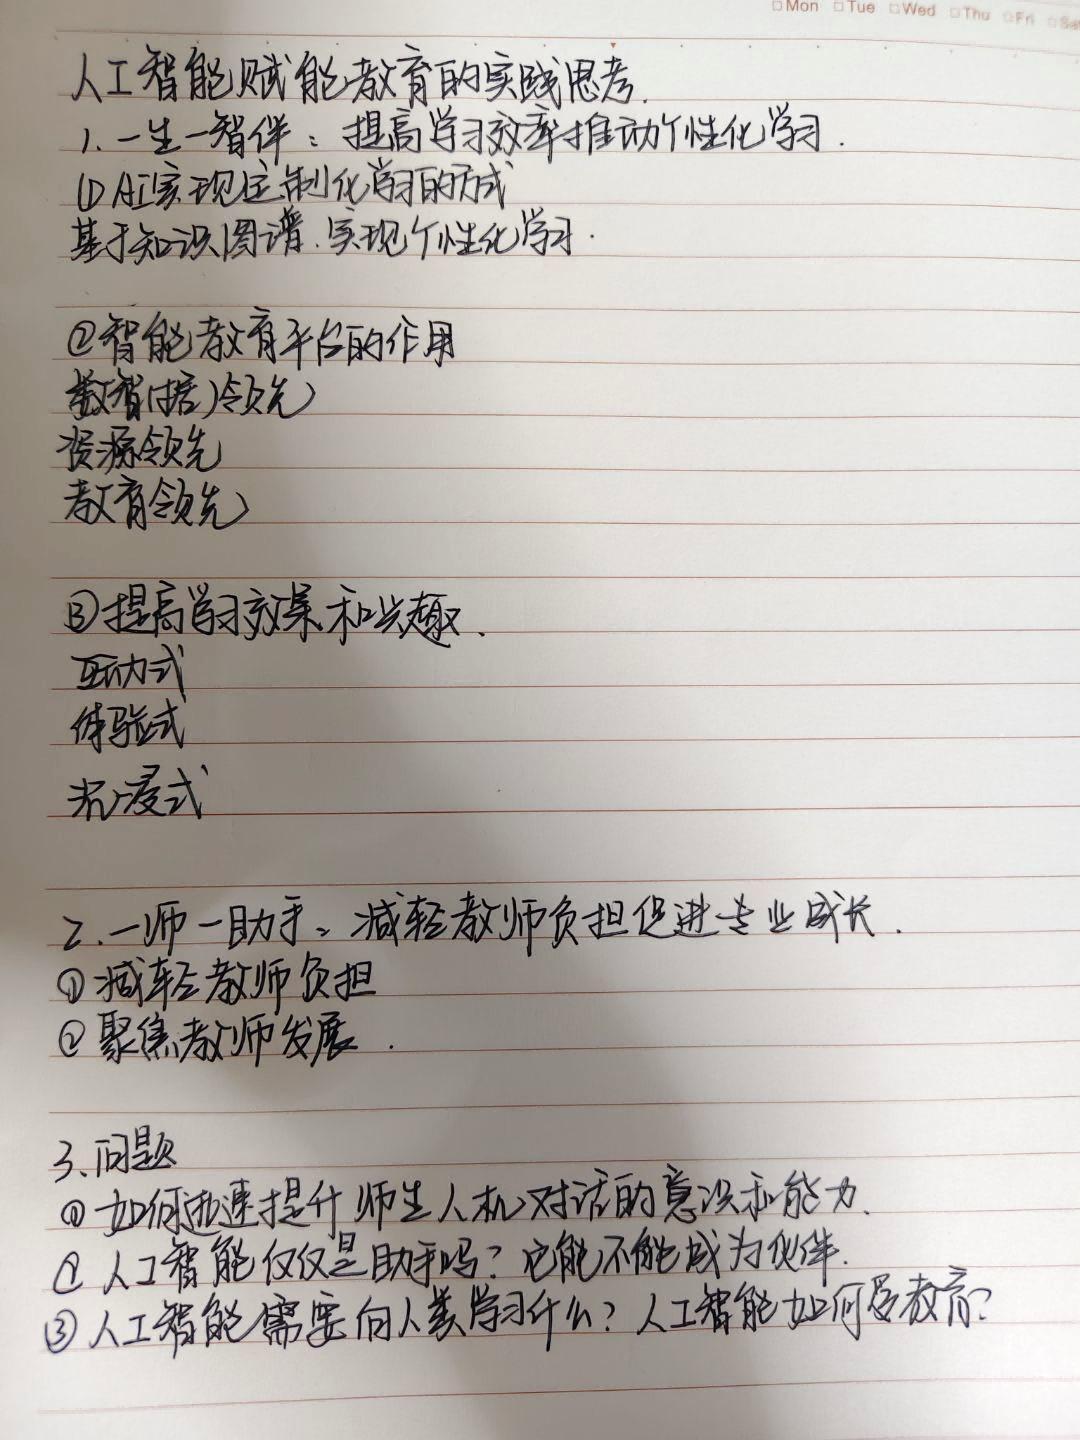 Mon Tue Wed Thu Fri Sat
人工智能赋能教育的实践思考.
1. 一生一智伴：提高学习效率推动个性化学习.
① AI实现定制化学习的方式
基于知识图谱.实现个性化学习.
②智能教育平台的作用
数智(据)领先
资源领先
教育领先
③提高学习效果和兴趣.
互动式
体验式
沉浸式
2. 一师一助手：减轻教师负担促进专业成长.
①减轻教师负担
②聚焦教师发展.
3.问题
①如何迅速提升师生人机对话的意识和能力.
②人工智能仅仅是助手吗？它能不能成为伙伴.
③人工智能需要向人类学习什么？人工智能如何受教育？